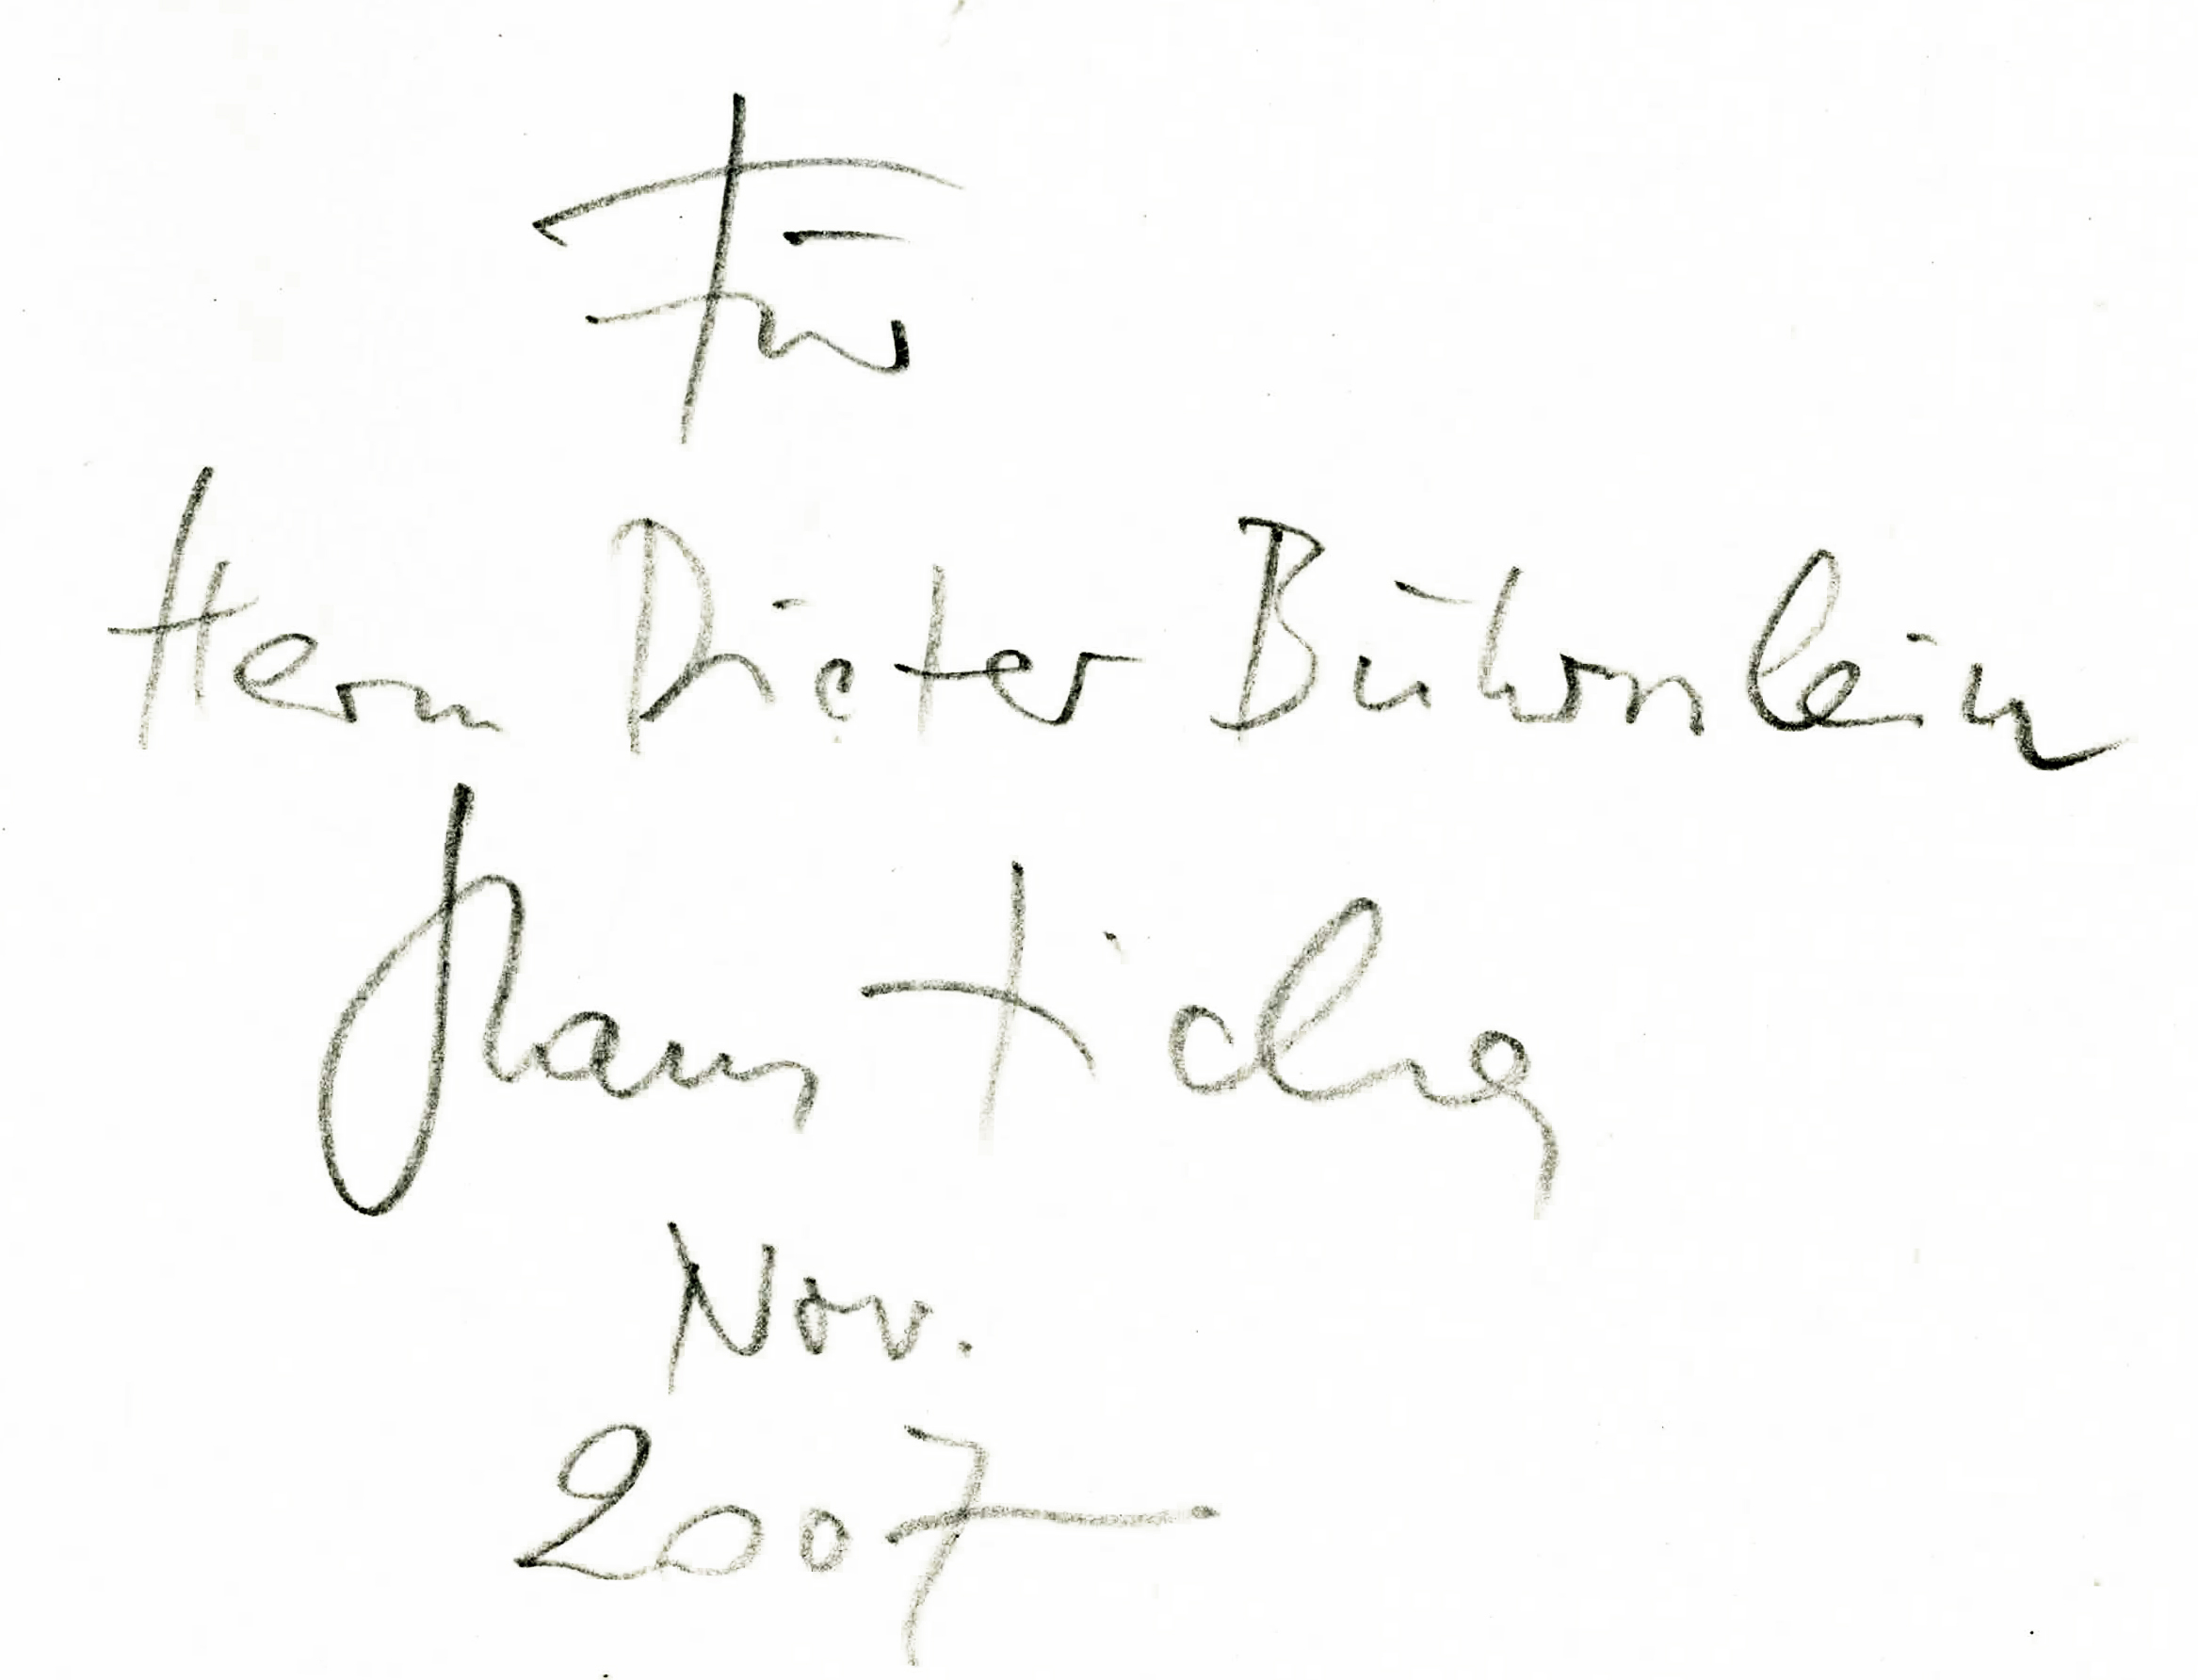 Für
Herrn Dieter Bührnlein
Hans Ticha
Nov.
2007